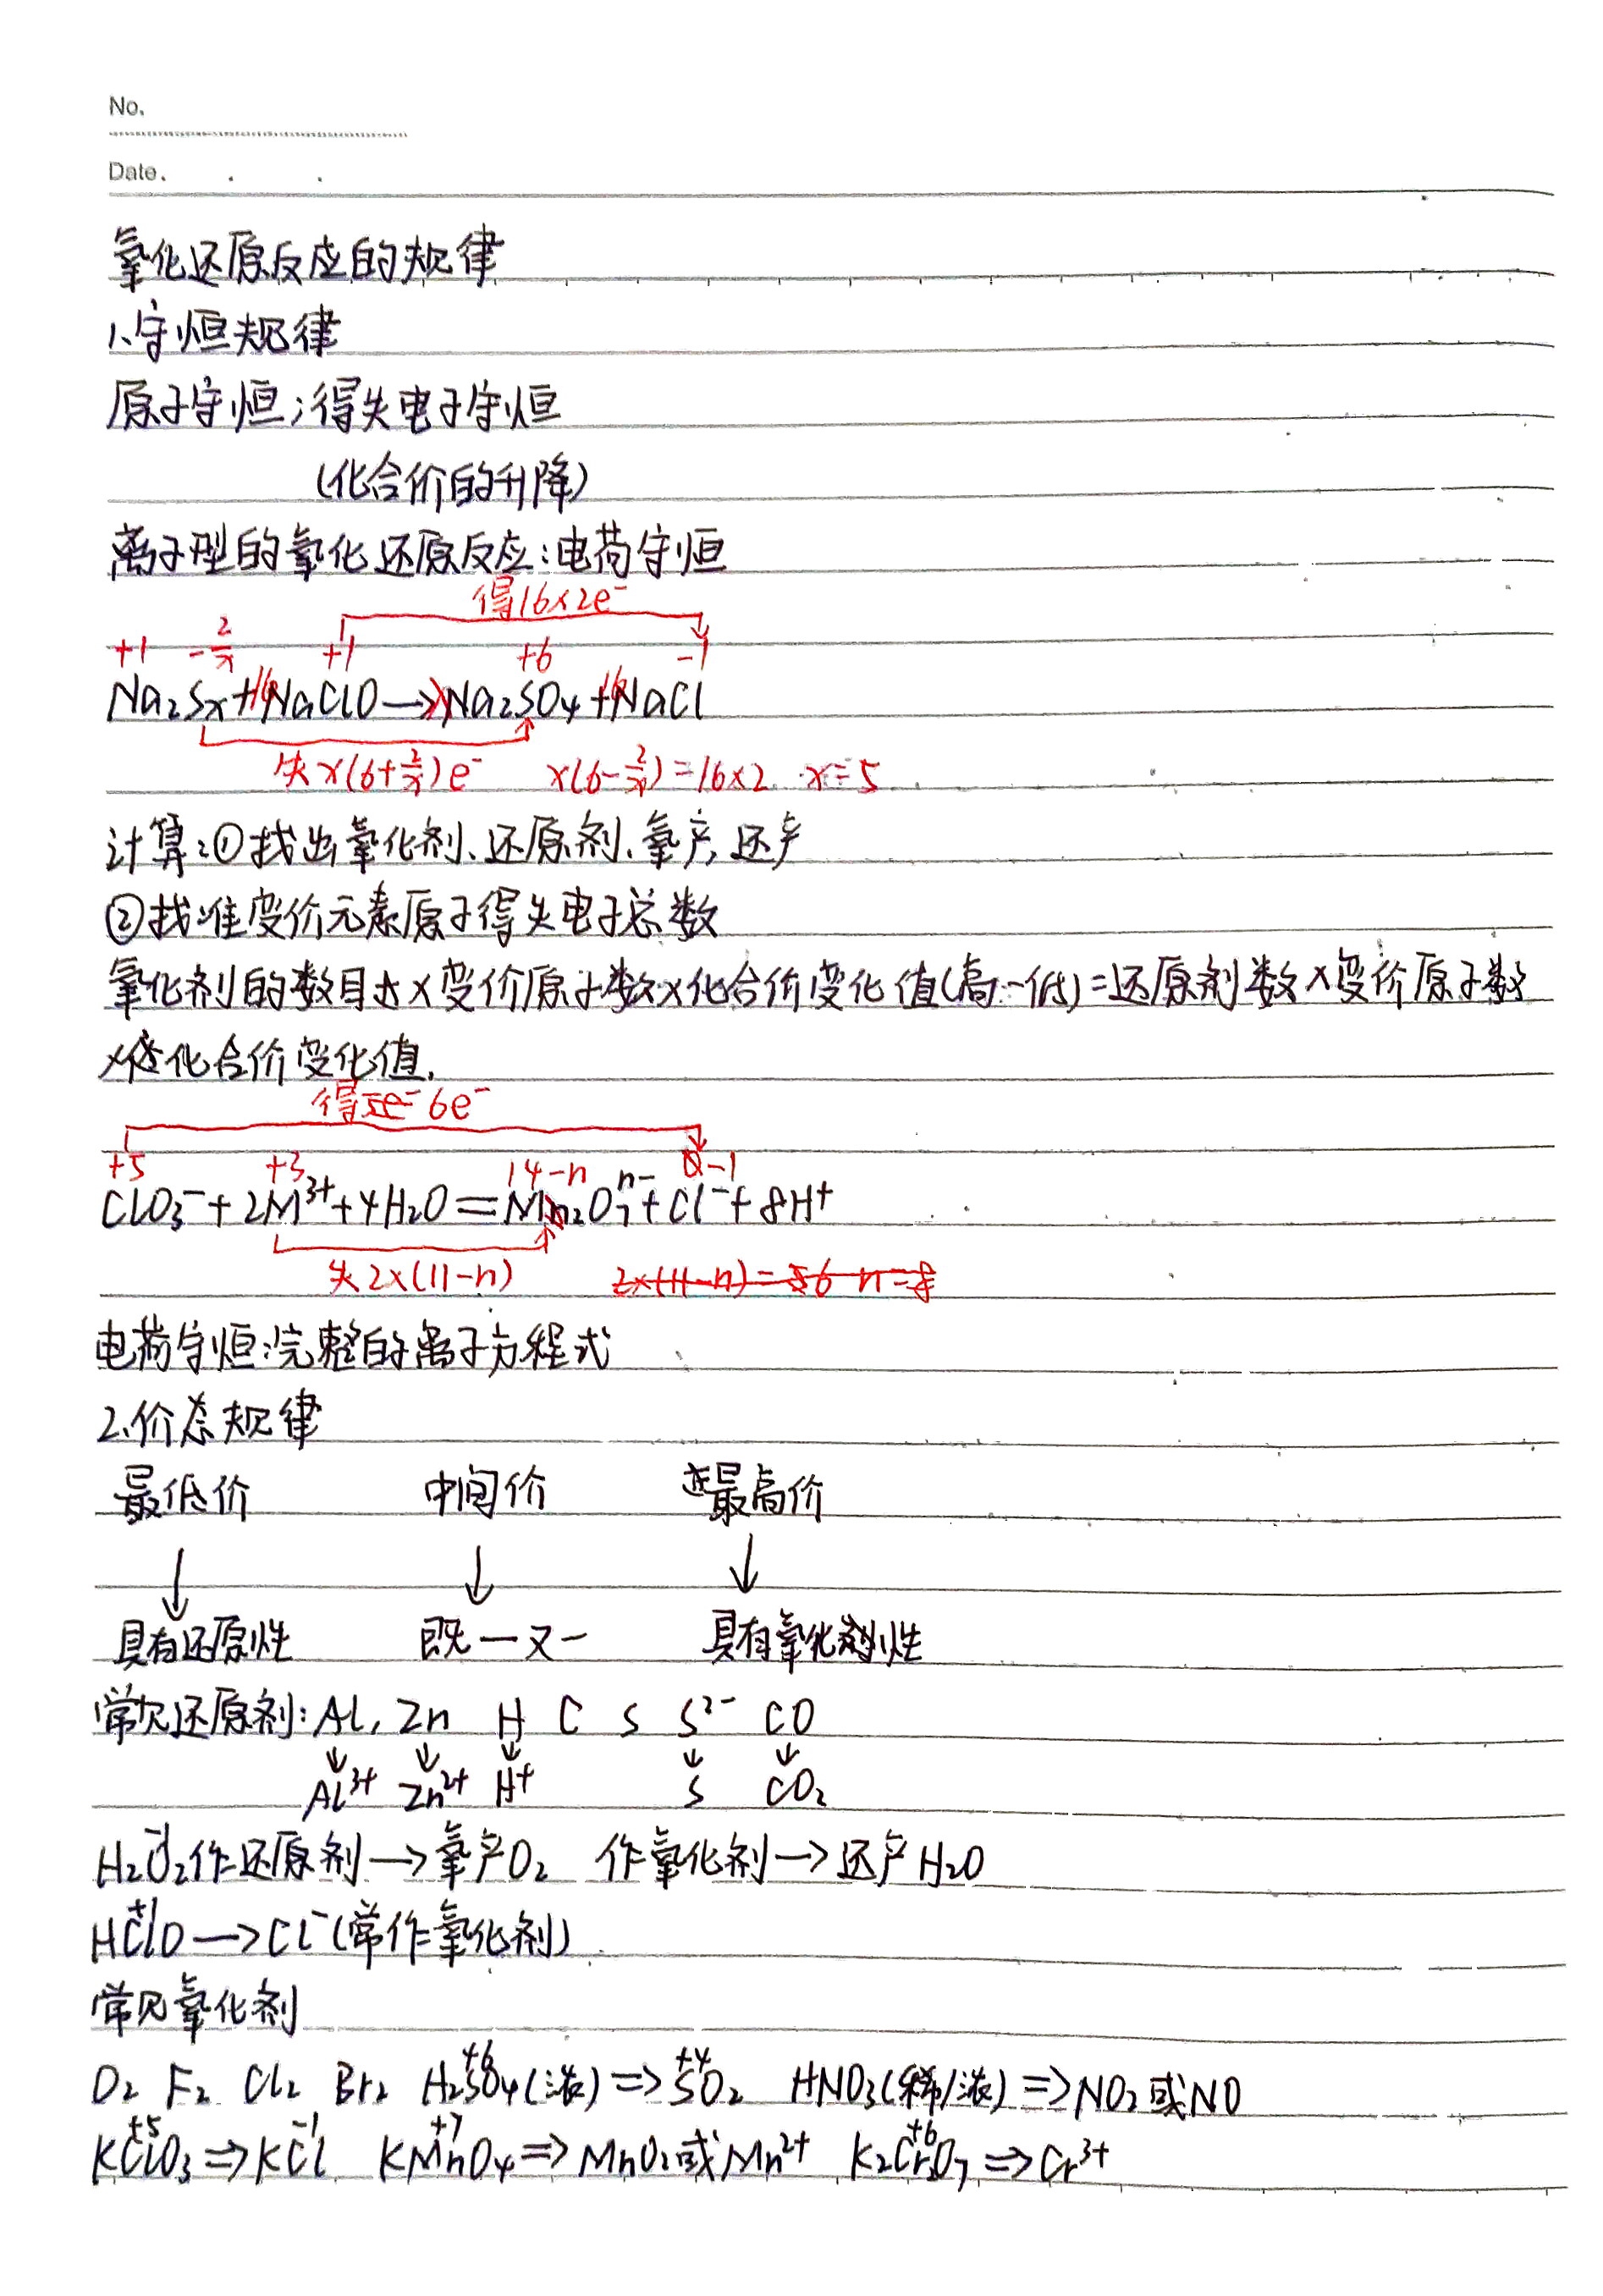 No.
Date.
氧化还原反应的规律
1、守恒规律
原子守恒；得失电子守恒
(化合价的升降)
离子型的氧化还原反应：电荷守恒
得16×2e⁻
+1 -2/x +1 +6 -1
Na₂Sx+16NaClO→xNa₂SO₄+16NaCl
失x(6+2/x)e⁻ x(6-2/x)=16×2 x=5
计算：①找出氧化剂、还原剂、氧产，还产
②找准变价元素原子得失电子总数
氧化剂的数目×变价原子数×化合价变化值(高-低)=还原剂数×变价原子数
×化合价变化值.
得5e⁻ 6e⁻
+5 +3 14-n 0-1
ClO₃⁻+2M³⁺+4H₂O=M₂O₇ⁿ⁻+Cl⁻+8H⁺
失2×(11-n) 2×(11-n)=56 n=8
电荷守恒：完整的离子方程式
2、价态规律
最低价 中间价 最高价
↓ ↓ ↓
具有还原性 既一又一 具有氧化性
常见还原剂：Al, Zn H C S S²⁻ CO
↓ ↓ ↓ ↓ ↓
Al³⁺ Zn²⁺ H⁺ S CO₂
-1
H₂O₂作还原剂→氧产O₂ 作氧化剂→还产H₂O
+1
HClO→Cl⁻(常作氧化剂)
常见氧化剂
+6 +4
O₂ F₂ Cl₂ Br₂ H₂SO₄(浓)⇒SO₂ HNO₃(稀/浓)⇒NO₂或NO
+5 -1 +7 +6
KClO₃⇒KCl KMnO₄⇒MnO₂或Mn²⁺ K₂Cr₂O₇⇒Cr³⁺